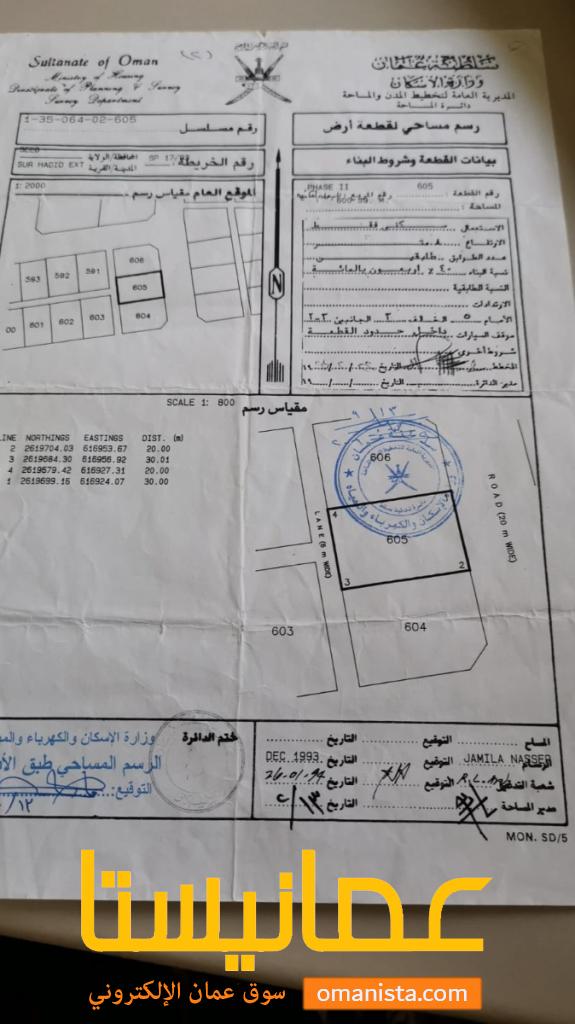 Sultanate of Oman
Ministry of Housing
Directorate of Planning & Survey
Survey Department
(٢)
سلطنة عمان
وزارة الإسكان
المديرية العامة لتخطيط المدن والمساحة
دائرة المساحة
1-35-064-02-605
رقم مسلسل
رسم مساحي لقطعة أرض
SEEB
SUR HADID EXT
المحافظة/الولاية
المدينة/القرية
SP 17/
رقم الخريطة
بيانات القطعة وشروط البناء
1: 2000
الموقع العام مقياس رسم
606
593 592 591
605
00 601 602 603 604
N
PHASE II
605
رقم القطعة :
المساحة :
الاستعمال
سكني فقط
الارتفاع
متر
عدد الطوابق
طابقين
نسبة البناء
٤٠ ٪ أربعون بالمائة
النسبة الطابقية :
الارتدادات :
الأمام ٥ الخلف ٣ الجانبين ٣-٢
موقف السيارات
داخل حدود القطعة
شروط أخرى
المخطط
التاريخ
١٩
مدير الدائرة
التاريخ
١٩
SCALE 1: 800
مقياس رسم
LINE NORTHINGS EASTINGS DIST. (m)
2 2619704.03 616953.67 20.00
3 2619684.30 616956.92 30.01
4 2619679.42 616927.31 20.00
1 2619699.15 616924.07 30.00
606
4
605
2
3
LANE (6 m WIDE)
ROAD (20 m WIDE)
603
604
وزارة الإسكان والكهرباء والمي
الرسم المساحي طبق الأ
التوقيع:
/١٢
ختم الدائرة
المساح
التوقيع
التاريخ
الرسام
JAMILA NASSER
التوقيع
التاريخ
DEC 1993
شعبة التدقيق
التوقيع
التاريخ
26.01.94
مدير المساحة
التاريخ
MON. SD/5
عمانيستا
سوق عمان الإلكتروني
omanista.com